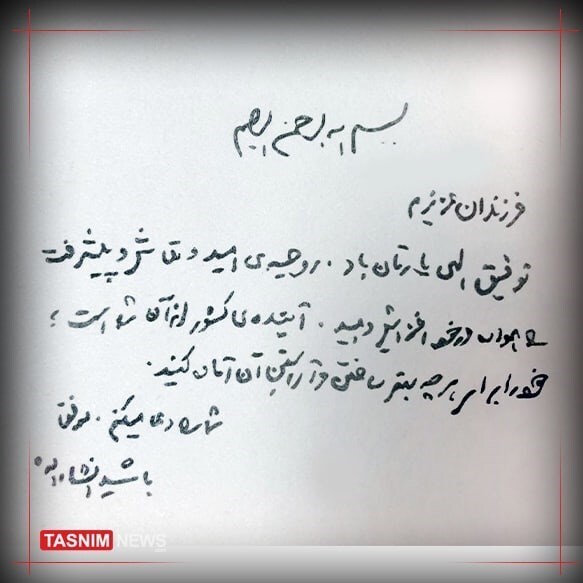 بسم الله الرحمن الرحیم
فرزندان عزیزم
توفیق الهی یارتان باد. روحیه‌ی امید و تلاش و پیشرفت
همواره در خود افزایش دهید. آینده‌ی کشور از آن شما است؛
خود را برای هر چه بهتر ساختن و آراستن آن آماده کنید.
شما را دعا میکنم. موفق
باشید انشاءالله
TASNIM NEWS